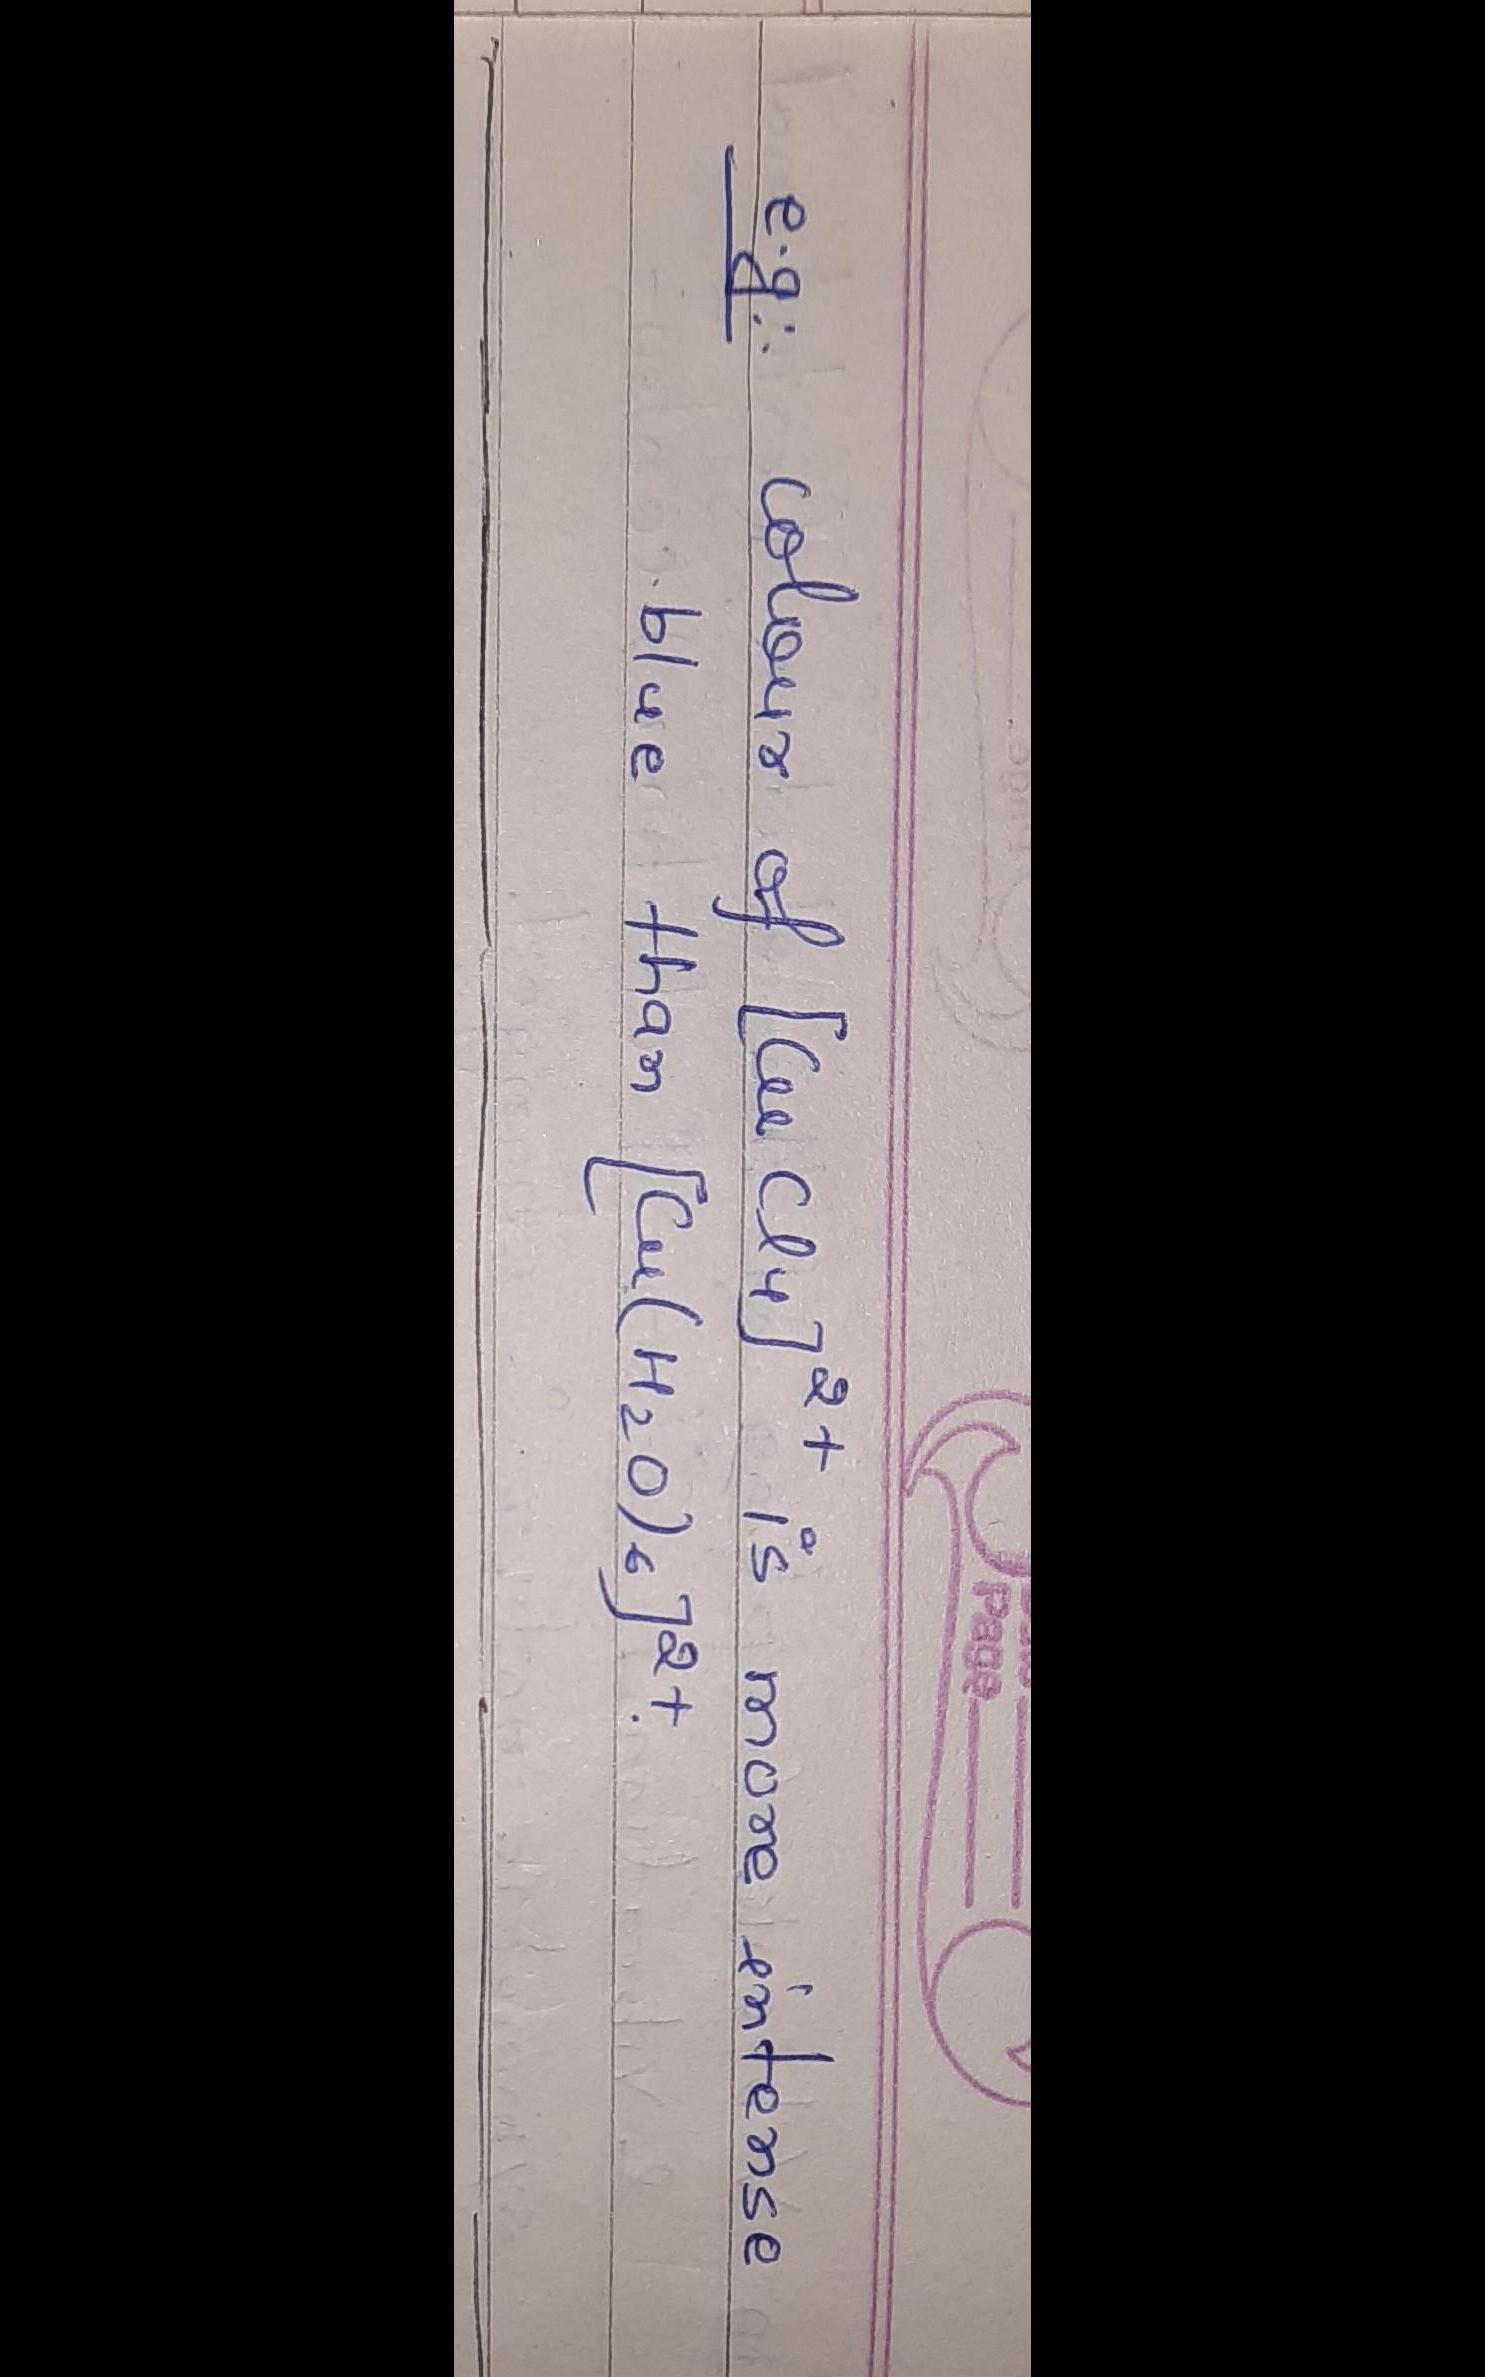 Page
e.g:. colour of [CuCl4]2+ is more intense
blue than [Cu(H2O)6]2+.